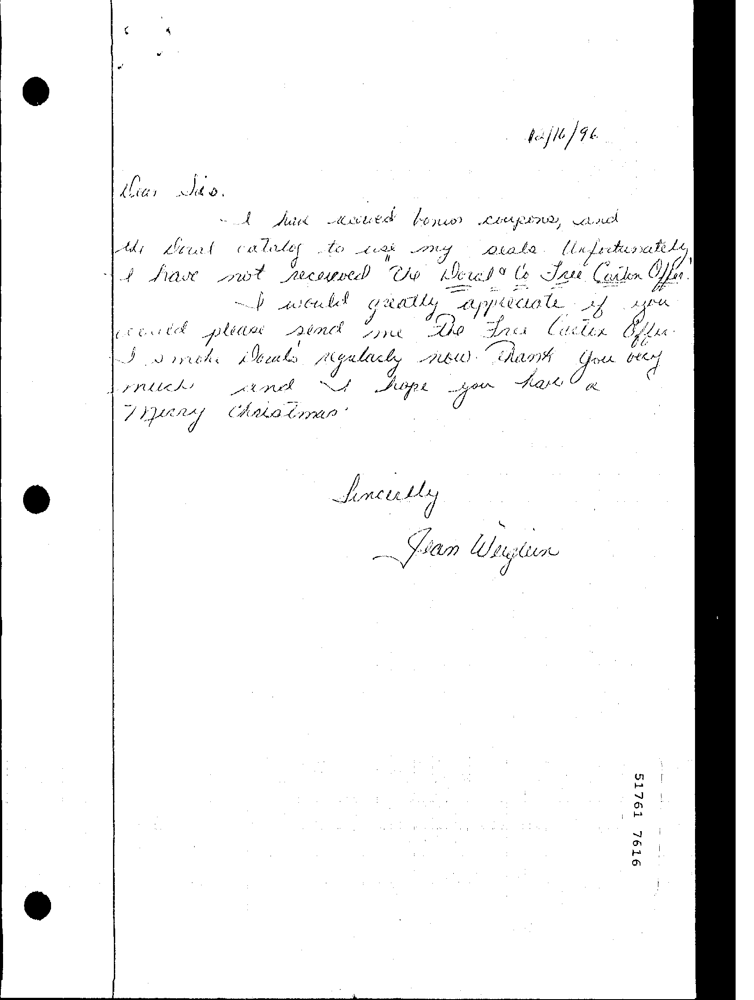 12/16/96
Dear Sirs.
I have received bonus coupons, and
the Doral catalog to use my seals. Unfortunately,
I have not received "The Doral & Co Free Carton Offer."
I would greatly appreciate if you
would please send me The Free Carton Offer.
I smoke Dorals regularly now. Thank you very
much and I hope you have a
Merry Christmas.
Sincerely
Jean
51761 7616